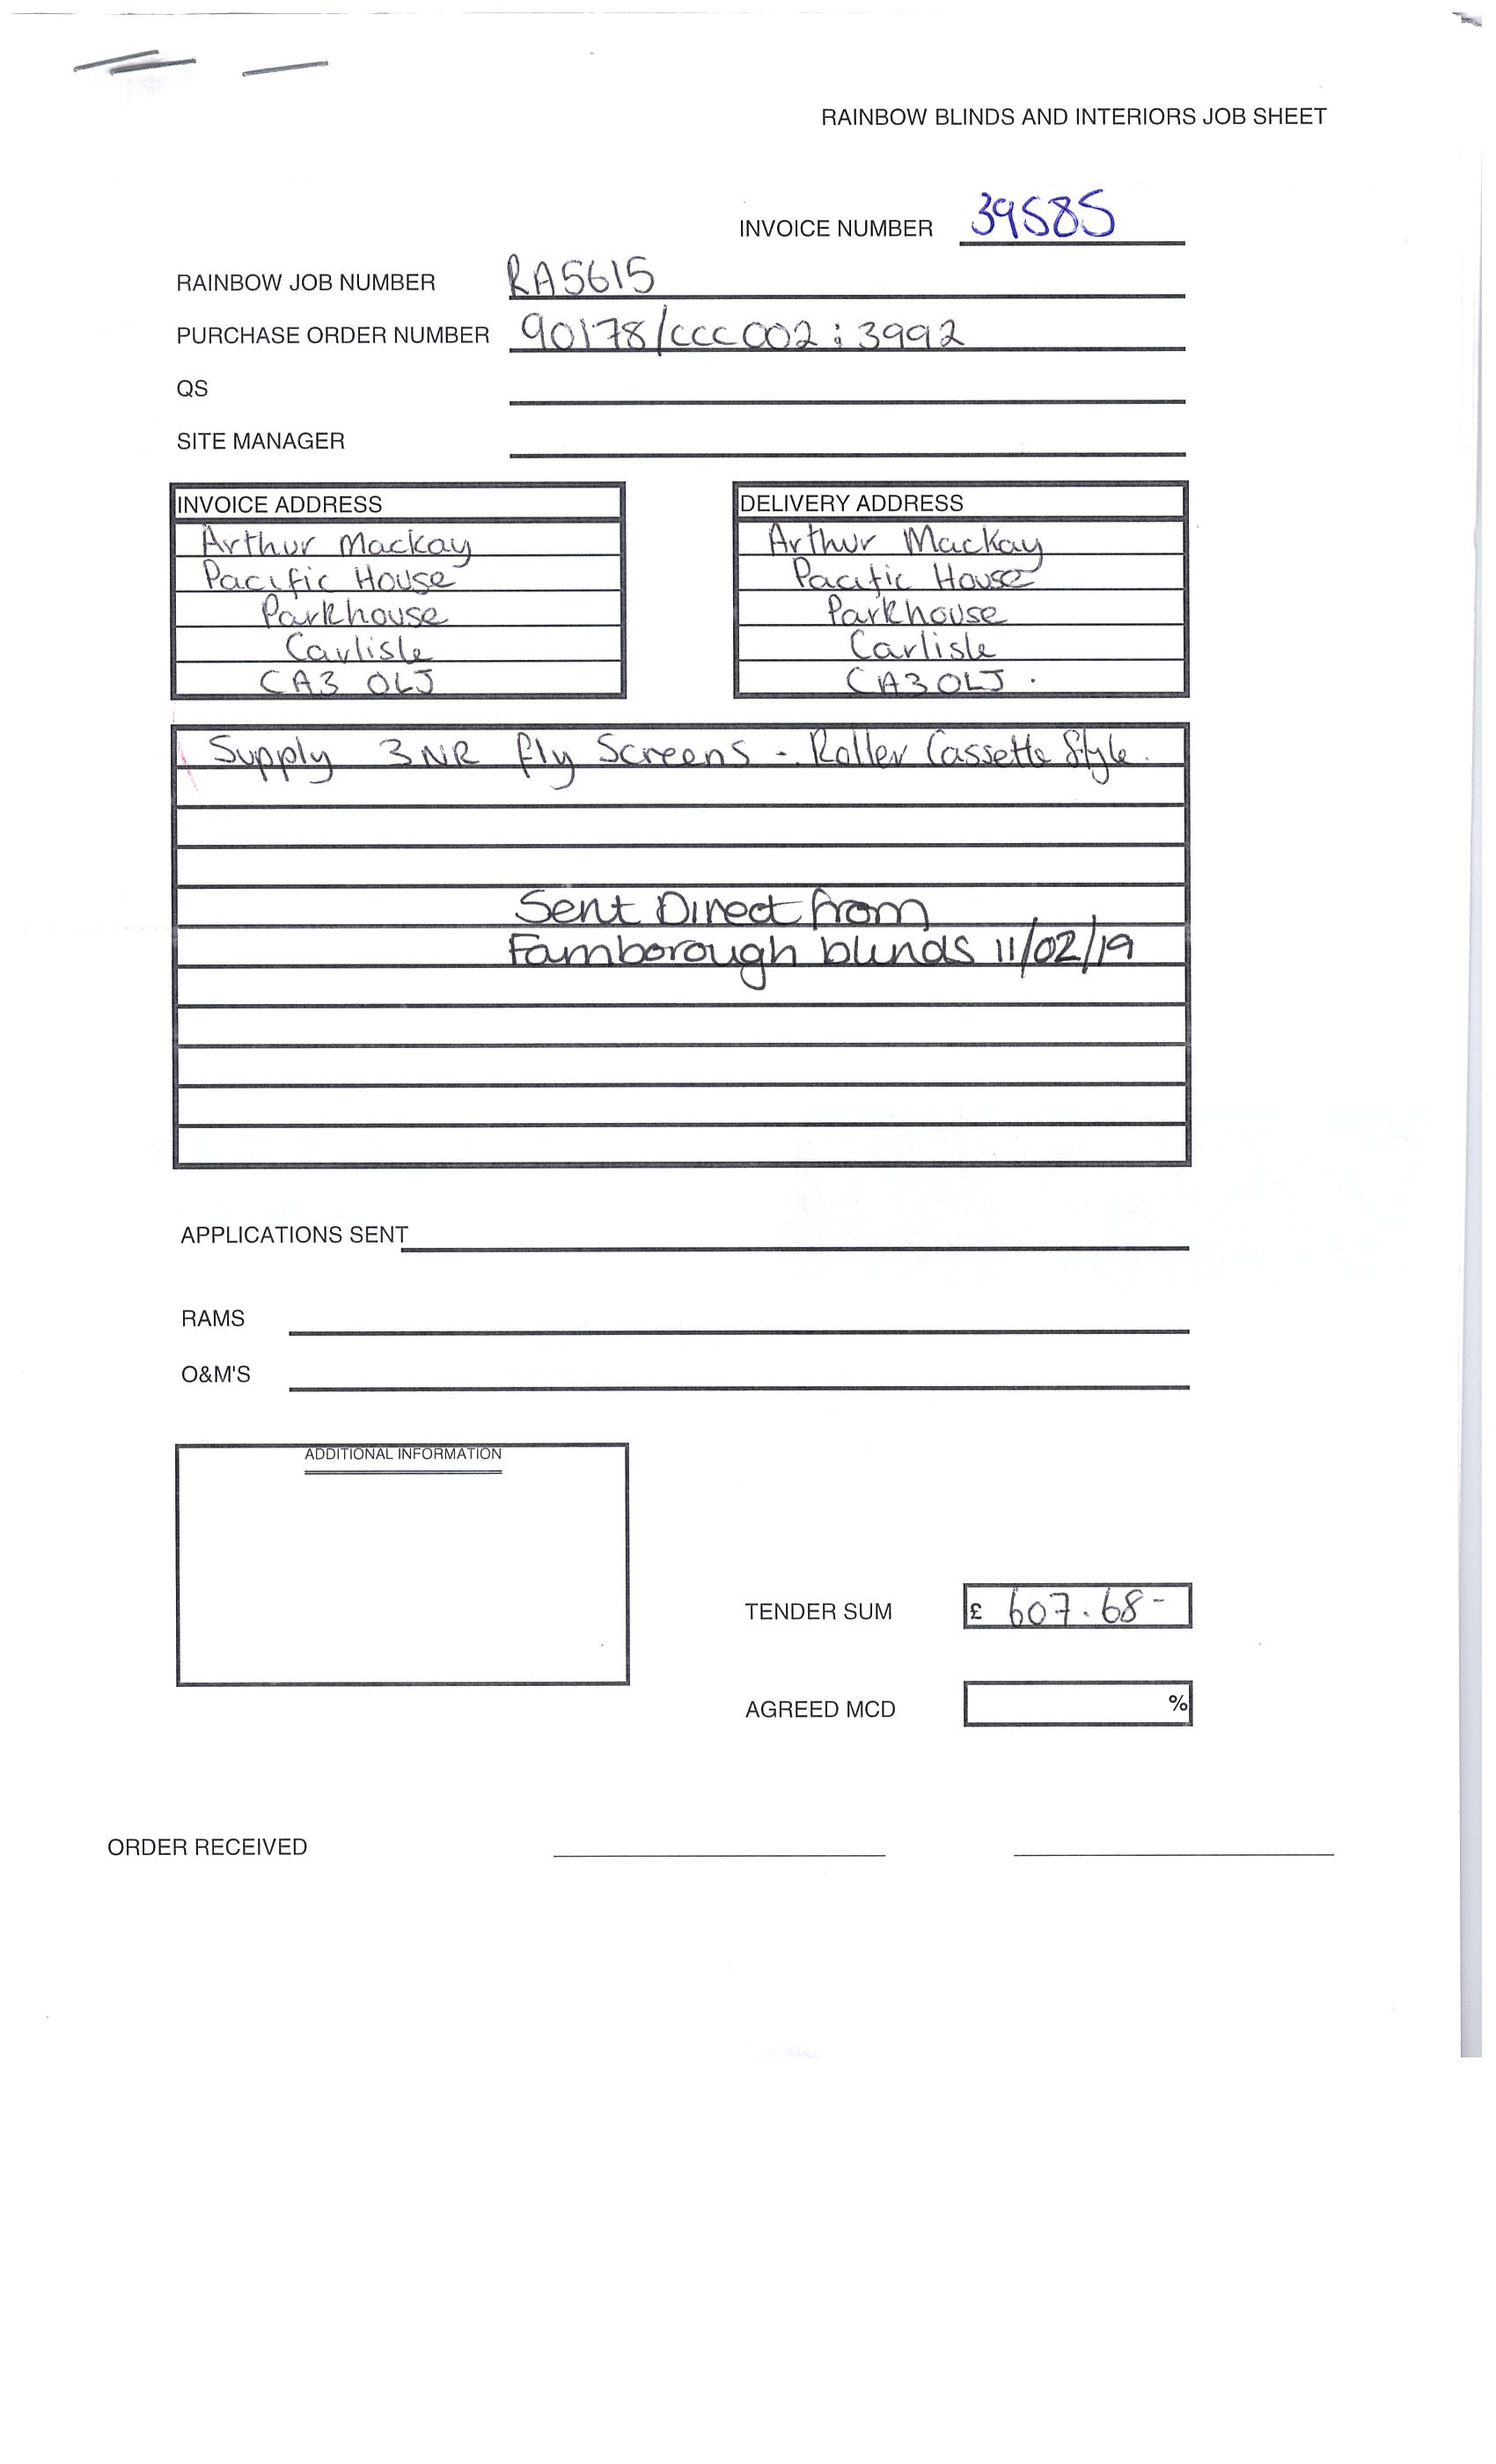 RAINBOW BLINDS AND INTERIORS JOB SHEET
INVOICE NUMBER 39585
RAINBOW JOB NUMBER RA5615
PURCHASE ORDER NUMBER 90178/CCC002:3992
QS
SITE MANAGER
INVOICE ADDRESS
Arthur Mackay
Pacific House
Parkhouse
Carlisle
CA3 0LJ
DELIVERY ADDRESS
Arthur Mackay
Pacific House
Parkhouse
Carlisle
CA3 0LJ.
Supply 3NR fly Screens - Roller Cassette Style.
Sent Direct from
Farnborough blinds 11/02/19
APPLICATIONS SENT
RAMS
O&M'S
ADDITIONAL INFORMATION
TENDER SUM £ 607.68-
AGREED MCD %
ORDER RECEIVED